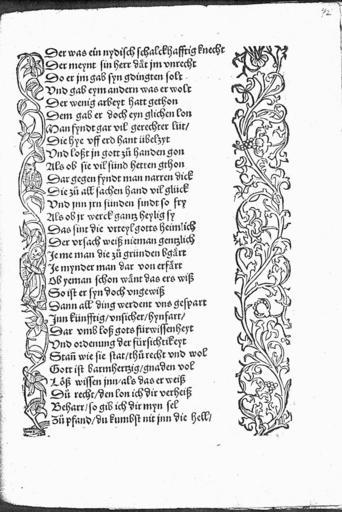 42
Der was ein nydisch schalckhafftig knecht
Der meynt sin herr dåt jm vnrecht
Do er jm gab syn gdingten solt
Vnd gab eym andern was er wolt
Der wenig arbeyt hatt gethon
Dem gab er doch eyn glichen lon
Man fyndt gar vil gerechter lüt/
Die hye vff erd hant übelzyt
Vnd loßt jn gott zů handen gon
Als ob sie vil sünd hetten gthon
Dar gegen fyndt man narren dick
Die zů all sachen hand vil glück
Vnd jnn jrn sünden sindt so fry
Als ob jr werck gantz heylig sy
Das sint die vrteyl gotts heimlich
Der vrsach weiß nieman gentzlich
Je me man die zů gründen bgårt
Je mynder man dar von erfårt
Ob yeman schon wånt das ers wiß
So ist er syn doch vngewiß
Dann all ding werdent vns gespart
Jnn künfftig/vnsicher/hynfart/
Dar vmb loß gots fürwissenheyt
Vnd ordenung der fürsichtikeyt
Stan wie sie stat/thů recht vnd wol
Gott ist barmhertzig/gnaden vol
Loß wissen jnn/als das er weiß
Dů recht/den lon ich dir verheiß
Beharr/so gib ich dir myn sel
Zů pfand/du kumbst nit jnn die hell/